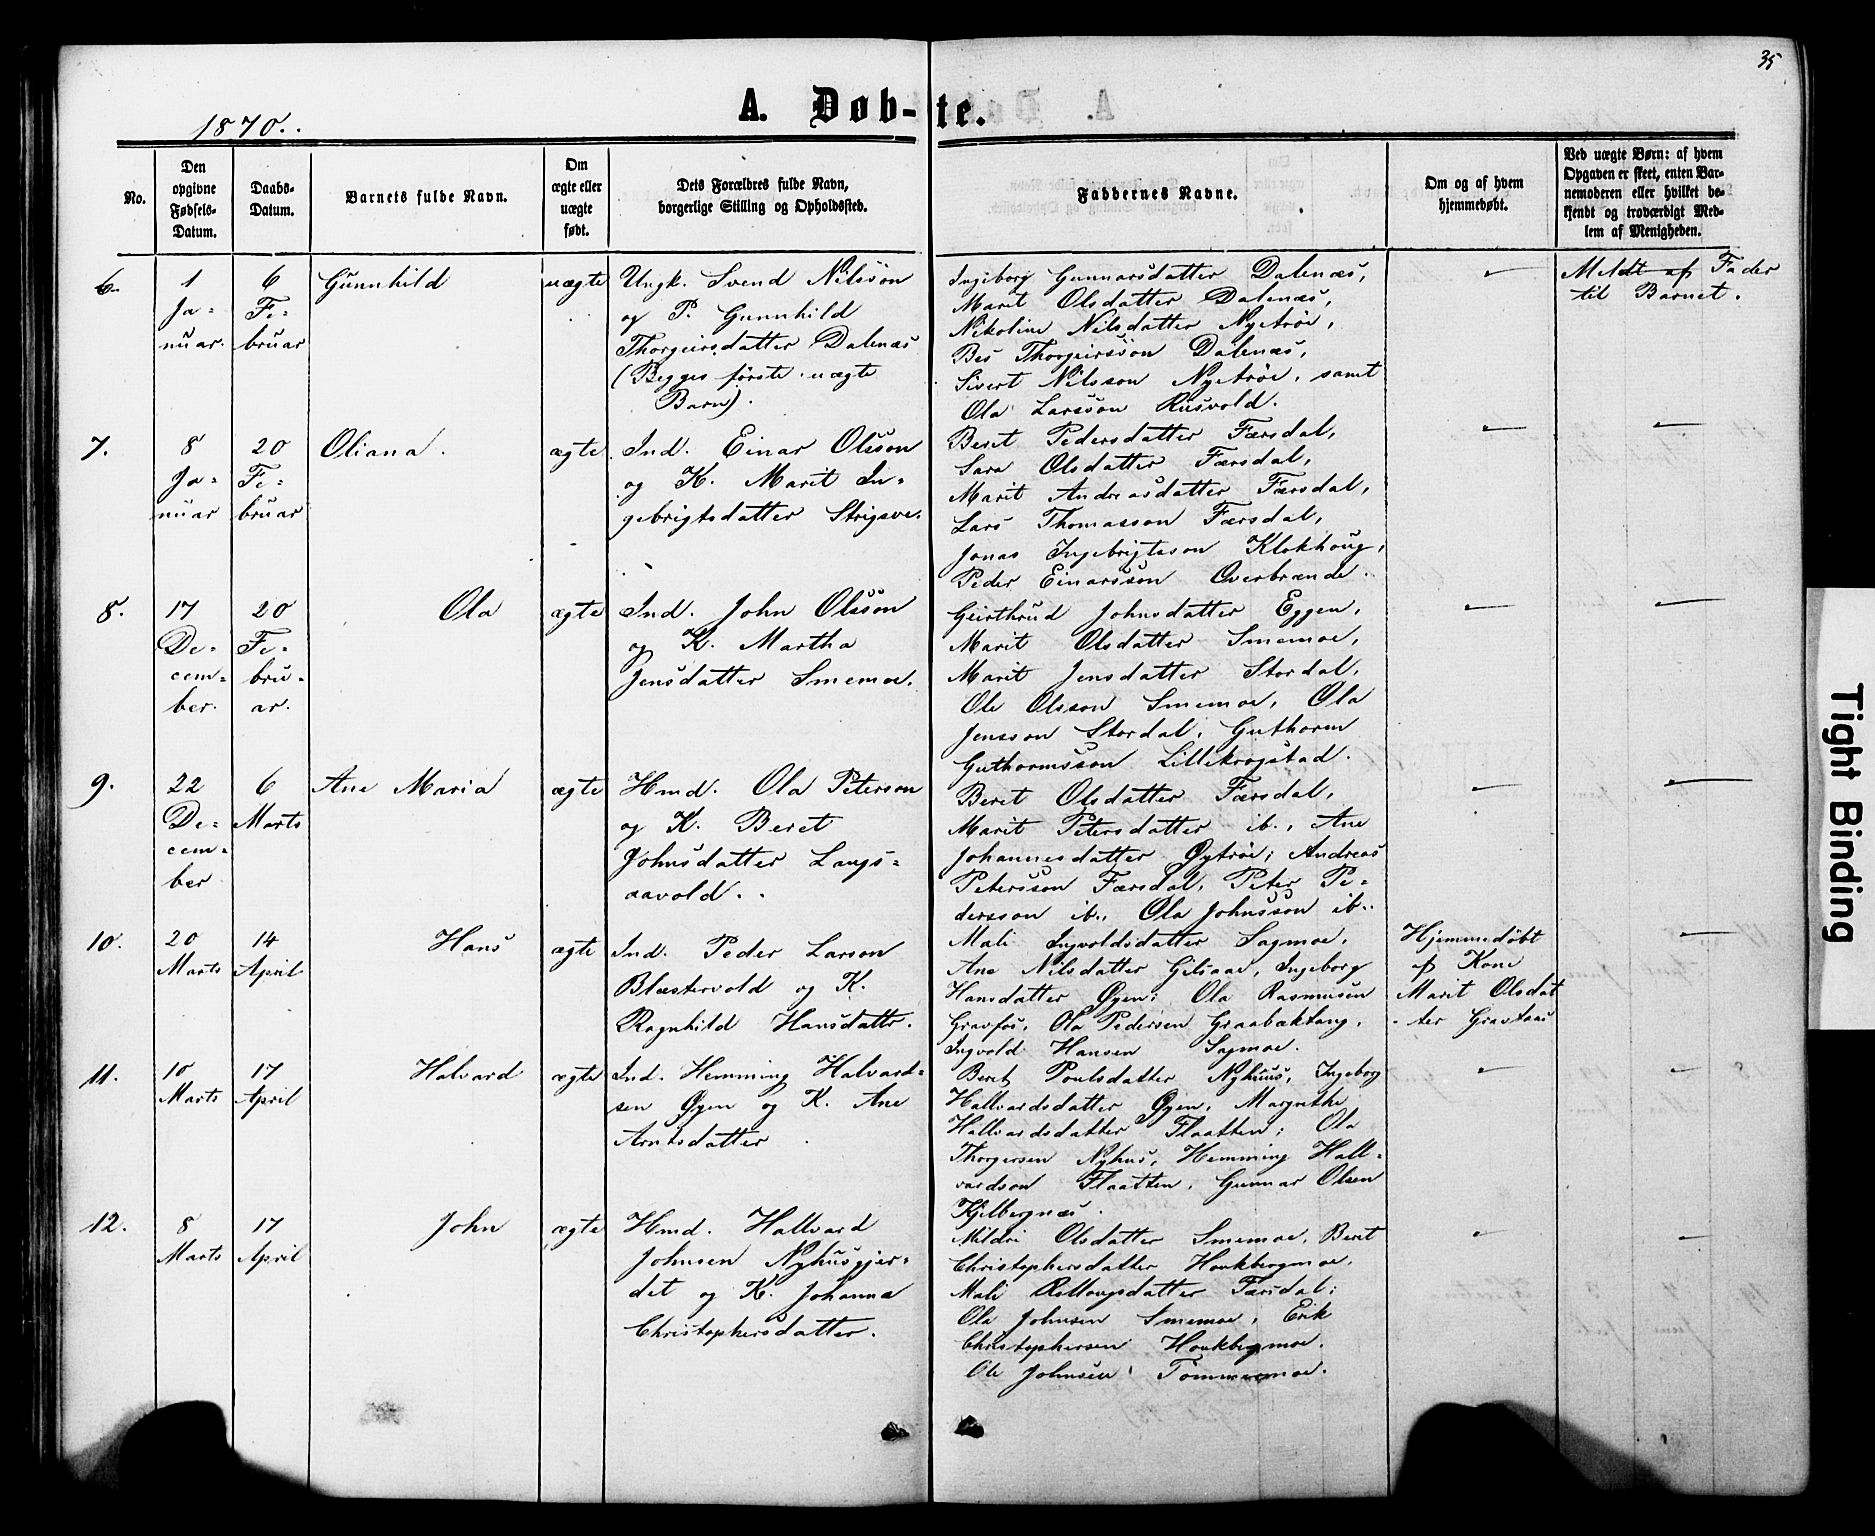 35
1870.
A. Døb-te.
No.
Den opgivne Fødsels-Datum.
Daabs-Datum.
Barnets fulde Navn.
Om ægte eller uægte født.
Dets Forældres fulde Navn, borgerlige Stilling og Opholdssted.
Faddernes Navne.
Om og af hvem hjemmedøbt.
Ved uægte Børn: af hvem Opgaven er skeet, enten Barnemoderen eller hvilket bekjendt og troværdigt Medlem af Menigheden.
6.
1
Ja-
nuar.
6
Fe-
bruar
Gunnhild
uægte
Ungk. Svend Nilsson
og P. Gunnhild
Thorgeirsdatter Dalenæs
(Begges første uægte
Barn).
Ingeborg Gunnarsdatter Dalenæs,
Marit Olsdatter Dalenæs,
Nikoline Nilsdatter Nyetrøe,
Bes Thorgeirssøn Dalenæs,
Sivert Nilsson Nyetrøe, samt
Ola Larsson Rusvold.
Meldt af Fader
til Barnet.
7.
8
Ja-
nuar
20
Fe-
bruar
Oliana.
ægte
Ind. Einar Olsson
og K. Marit In-
gebrigtsdatter Strigsve.
Beret Pedersdatter Færsdal,
Sara Olsdatter Færsdal,
Marit Andreasdatter Færsdal,
Lars Thomasson Færsdal,
Jonas Ingebrigtsson Klokhoug,
Peder Einarsson Overbrænde.
8.
17
De-
cem-
ber.
20
Fe-
bru-
ar.
Ola
ægte
Ind. John Olsson
og K. Martha
Jensdatter Smemoe.
Geirthrud Johnsdatter Eggen,
Marit Olsdatter Smemoe,
Marit Jensdatter Stordal,
Ole Olsson Smemoe, Ola
Jensson Stordal, Guthorm
Guthormsson Lillekrogstad.
9.
22
De-
cem-
ber
6
Marts
Ane Maria
ægte
Hmd. Ola Peterson
og K. Beret
Johnsdatter Langs-
aavold.
Beret Olsdatter Færsdal,
Marit Petersdatter ib., Ane
Johannesdatter Øytrøe; Andreas
Petersson Færsdal, Peter Pe-
dersson ib., Ola Johnsson ib.
10.
20
Marts
14
April
Hans
ægte
Ind. Peder Larson
Blæstervold og K.
Ragnhild Hansdattr.
Mali Ingvoldsdatter Sagmoe,
Ane Nilsdatter Gilsaae, Ingeborg
Hansdatter Øyen; Ola Rasmusen
Gravfos, Ola Pedersen Graabæktang,
Ingvold Hansen Sagmoe.
Hjemmedøbt
af Kone
Marit Olsdat
-ter Gravfaas
11.
10
Marts
17
April
Halvard
ægte
Ind. Hemming Halvard-
sen Øyen og K. Ane
Arntsdatter
Beret Poulsdatter Nyhuus, Ingeborg
Hallvardsdatter Øyen, Margrethe
Hallvardsdatter Flaatten; Ola
Thorgersen Nyhus, Hemming Hall-
vardson Flaatten, Gunnar Olsen
Kjelbergnæs.
12.
8
Marts
17
April
John
ægte
Hmd. Hallvard
Johnsen Nyhusgjer-
det og K. Johanna
Christophersdatter.
Mildri Olsdatter Smemoe, Beret
Christophersdatter Houkbergmoe,
Mali Rollougsdatter Færsdal;
Ola Johnsen Smemoe, Erik
Christophersen Houkbegmoe.
Ole Johnsen Tommermoe.
Tight Binding